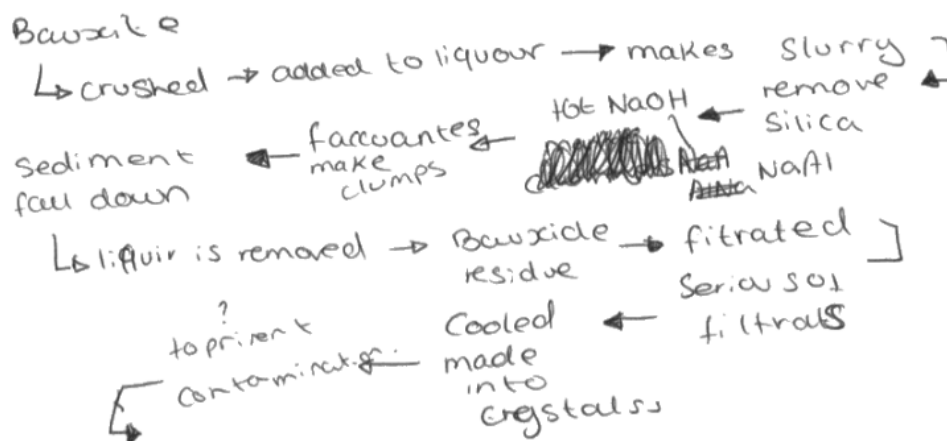 Bauxite
↳ crushed → added to liquour → makes slurry
remove silica
← Hot NaOH
NaAl
← faccuantes make clumps
← sediment fall down
↳ liquir is removed → Bauxide residue → fitrated
Serious of filtrats
← Cooled made into crystalss
← to privent contamination
?